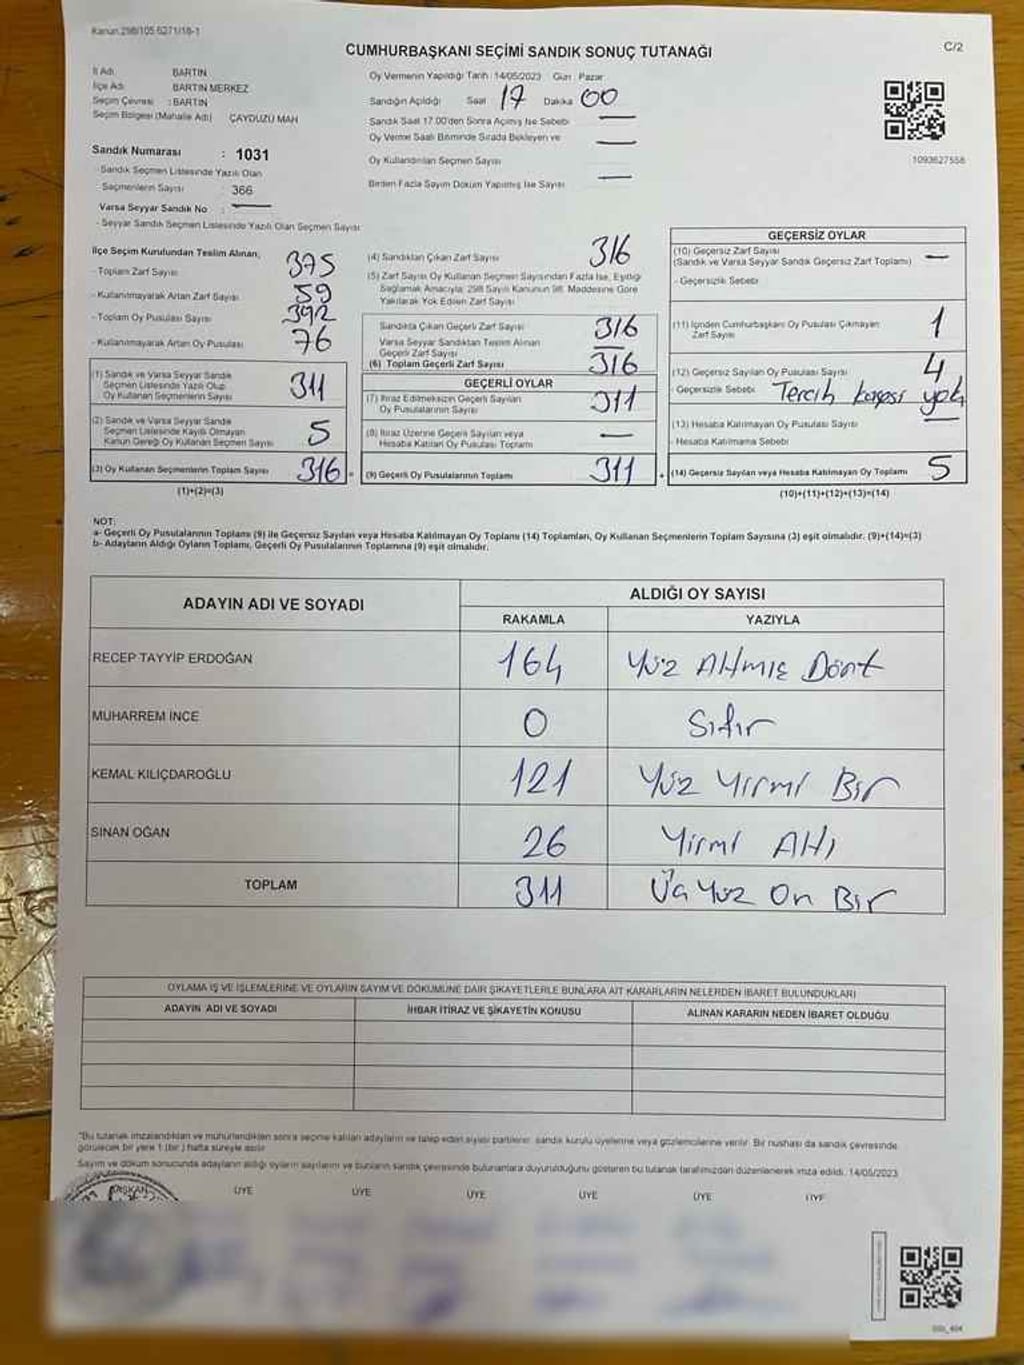 Kanun 298/105 6271/18-1
CUMHURBAŞKANI SEÇİMİ SANDIK SONUÇ TUTANAĞI
C/2
İl Adı BARTIN
İlçe Adı BARTIN MERKEZ
Seçim Çevresi : BARTIN
Seçim Bölgesi (Mahalle Adı) ÇAYDÜZÜ MAH
Sandık Numarası : 1031
Sandık Seçmen Listesinde Yazılı Olan
Seçmenlerin Sayısı : 366
Varsa Seyyar Sandık No : —
- Seyyar Sandık Seçmen Listesinde Yazılı Olan Seçmen Sayısı
Oy Vermenin Yapıldığı Tarih 14/05/2023 Gün Pazar
Sandığın Açıldığı Saat 17 Dakika 00
Sandık Saat 17.00'den Sonra Açılmış İse Sebebi —
Oy Verme Saati Bitiminde Sırada Bekleyen ve —
Oy Kullandırılan Seçmen Sayısı
Birden Fazla Sayım Döküm Yapılmış İse Sayısı —
1093627558
İlçe Seçim Kurulundan Teslim Alınan;
- Toplam Zarf Sayısı 375
- Kullanılmayarak Artan Zarf Sayısı 59
- Toplam Oy Pusulası Sayısı 392
- Kullanılmayarak Artan Oy Pusulası 76
(1) Sandık ve Varsa Seyyar Sandık
Seçmen Listesinde Yazılı Olup
Oy Kullanan Seçmenlerin Sayısı 311
(2) Sandık ve Varsa Seyyar Sandık
Seçmen Listesinde Kayıtlı Olmayan
Kanun Gereği Oy Kullanan Seçmen Sayısı 5
(3) Oy Kullanan Seçmenlerin Toplam Sayısı 316 =
(1)+(2)=(3)
(4) Sandıktan Çıkan Zarf Sayısı 316
(5) Zarf Sayısı Oy Kullanan Seçmen Sayısından Fazla İse, Eşitliği
Sağlamak Amacıyla; 298 Sayılı Kanunun 98. Maddesine Göre
Yakılarak Yok Edilen Zarf Sayısı
Sandıkta Çıkan Geçerli Zarf Sayısı 316
Varsa Seyyar Sandıktan Teslim Alınan
Geçerli Zarf Sayısı —
(6) Toplam Geçerli Zarf Sayısı 316
GEÇERLİ OYLAR
(7) İtiraz Edilmeksizin Geçerli Sayılan
Oy Pusulalarının Sayısı 311
(8) İtiraz Üzerine Geçerli Sayılan veya
Hesaba Katılan Oy Pusulası Toplamı —
(9) Geçerli Oy Pusulalarının Toplamı 311 +
GEÇERSİZ OYLAR
(10) Geçersiz Zarf Sayısı
(Sandık ve Varsa Seyyar Sandık Geçersiz Zarf Toplamı) —
- Geçersizlik Sebebi
(11) İçinden Cumhurbaşkanı Oy Pusulası Çıkmayan
Zarf Sayısı 1
(12) Geçersiz Sayılan Oy Pusulası Sayısı 4
- Geçersizlik Sebebi Tercih kaşesi yok
(13) Hesaba Katılmayan Oy Pusulası Sayısı —
- Hesaba Katılmama Sebebi
(14) Geçersiz Sayılan veya Hesaba Katılmayan Oy Toplamı 5
(10)+(11)+(12)+(13)=(14)
NOT:
a- Geçerli Oy Pusulalarının Toplamı (9) ile Geçersiz Sayılan veya Hesaba Katılmayan Oy Toplamı (14) Toplamları, Oy Kullanan Seçmenlerin Toplam Sayısına (3) eşit olmalıdır. (9)+(14)=(3)
b- Adayların Aldığı Oyların Toplamı, Geçerli Oy Pusulalarının Toplamına (9) eşit olmalıdır.
ADAYIN ADI VE SOYADI ALDIĞI OY SAYISI
RAKAMLA YAZIYLA
RECEP TAYYİP ERDOĞAN 164 Yüz Altmış Dört
MUHARREM İNCE 0 Sıfır
KEMAL KILIÇDAROĞLU 121 Yüz Yirmi Bir
SİNAN OĞAN 26 Yirmi Altı
TOPLAM 311 Üç Yüz On Bir
OYLAMA İŞ VE İŞLEMLERİNE VE OYLARIN SAYIM VE DÖKÜMÜNE DAİR ŞİKAYETLERLE BUNLARA AİT KARARLARIN NELERDEN İBARET BULUNDUKLARI
ADAYIN ADI VE SOYADI İHBAR İTİRAZ VE ŞİKAYETİN KONUSU ALINAN KARARIN NEDEN İBARET OLDUĞU
"Bu tutanak imzalandıktan ve mühürlendikten sonra seçime katılan adayların ve talep eden siyasi partilerin sandık kurulu üyelerine veya gözlemcilerine verilir. Bir nüshası da sandık çevresinde
görülecek bir yere 1 (bir) hafta süreyle asılır.
Sayım ve döküm sonucunda adayların aldığı oyların sayılarını ve bunların sandık çevresinde bulunanlara duyurulduğunu gösteren bu tutanak tarafımızdan düzenlenerek imza edildi. 14/05/2023
BAŞKAN ÜYE ÜYE ÜYE ÜYE ÜYE ÜYE